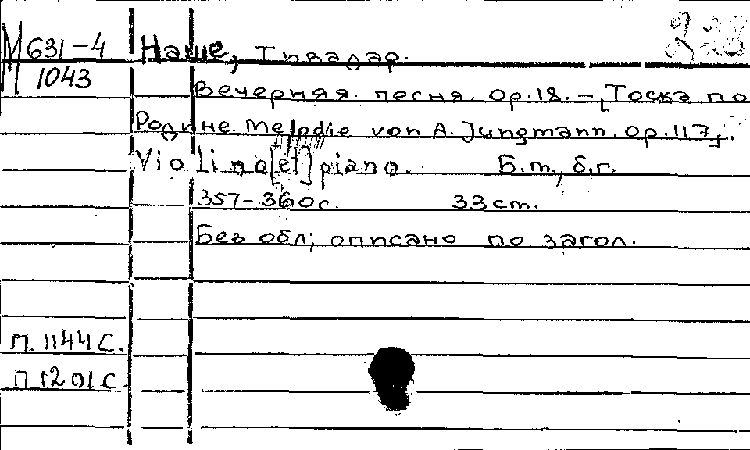 М 631-4
1043
Наше, Тивадар.
Вечерняя песня. op.18. – [Тоска по
Родине. Melodie von A. Jungmann. op.117].
Violino [e] piano. Б.т., б.г.
357-360 с. 33 cm.
Без обл; описано по загол.
П. 1144 С.
П 1201 С.